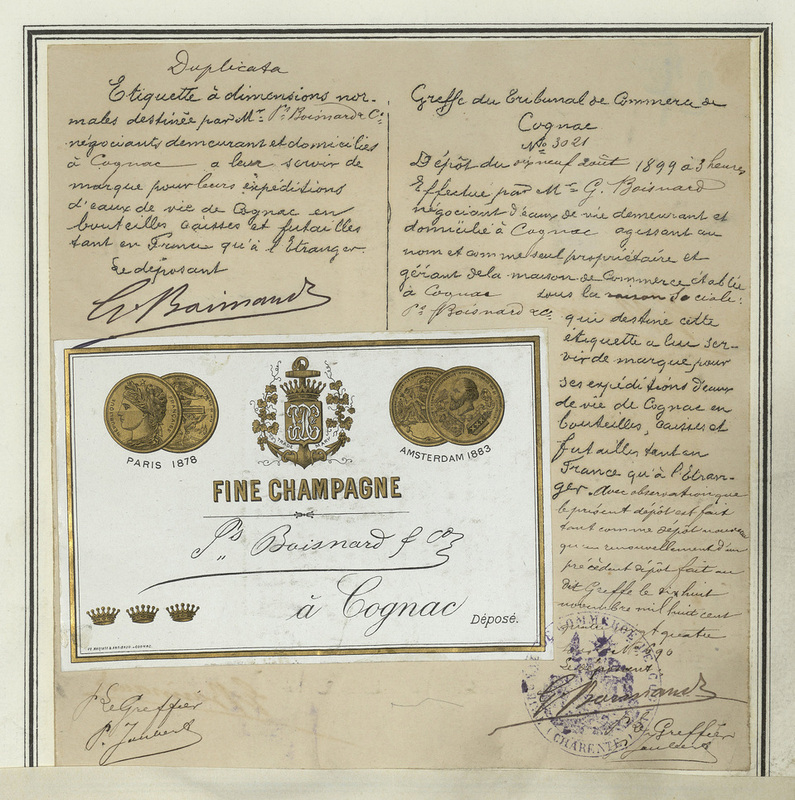 Duplicata
Etiquette à dimensions nor-
males destinée par Mr. Ps. Boisnard & Co.
négociants demeurant et domiciliés
à Cognac a leur servir de
marque pour leurs expéditions
d'eaux de vie de Cognac en
bouteilles caisses et futailles
tant en France qu'à l'Etranger.
Le déposant
Greffe du Tribunal de Commerce de
Cognac
No. 3021
Dépôt du dix neuf août 1899 à 3 heures
Effectué par Mr. G. Boisnard
négociant d'eaux de vie demeurant et
domicilié à Cognac agissant au
nom et comme seul propriétaire et
gérant de la maison de Commerce établie
à Cognac sous la raison Sociale:
Ps. Boisnard & Co. qui destine cette
etiquette a lui ser-
vir de marque pour
ses expéditions d'eaux
de vie de Cognac en
bouteilles, caisses et
futailles tant en
France qu'à l'Etran-
ger. Avec observation que
le présent dépôt est fait
tant comme dépôt nouveau
qu'en renouvellement d'un
précédent dépôt fait au
dit Greffe le dix huit
novembre mil huit cent
quatre
Le déposant
PARIS 1878
AMSTERDAM 1883
FINE CHAMPAGNE
Ps. Boisnard & Co
à Cognac
Déposé.
Le Greffier
P. Jaubert
COMMERCE DE
CHARENTE
Le Greffier
Jaubert